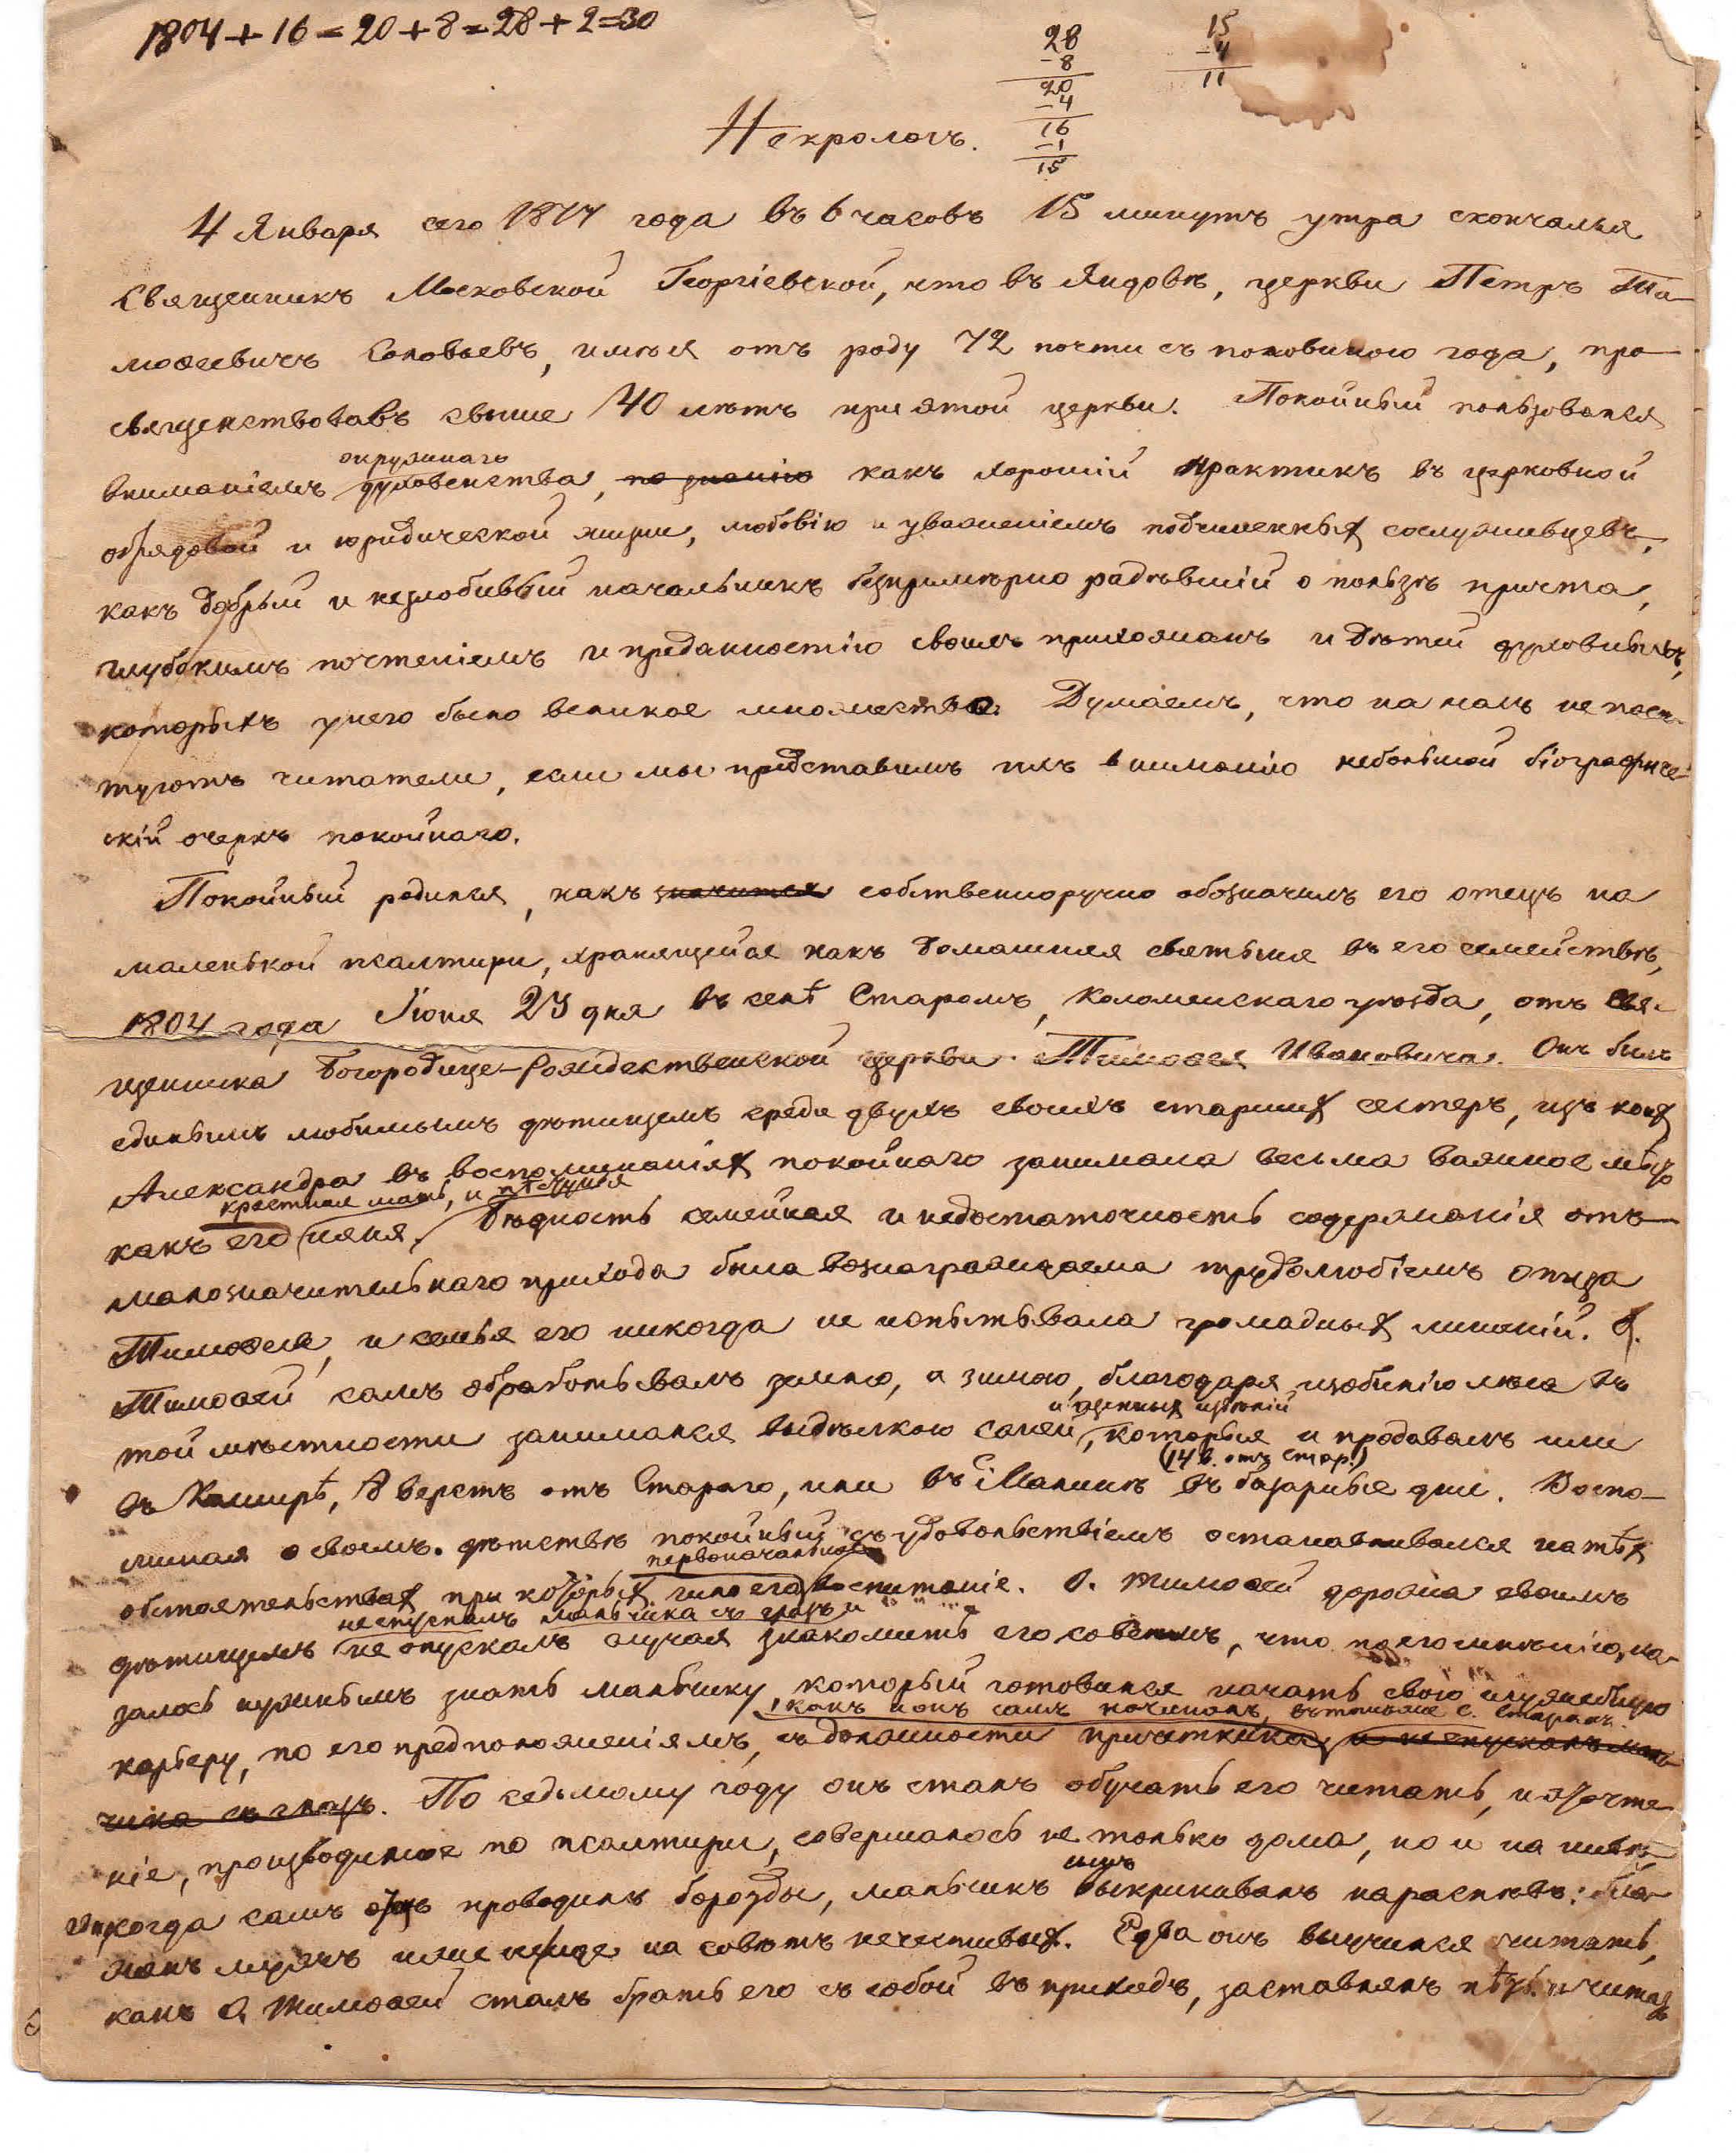 1804 + 16 = 20 + 8 = 28 + 2 = 30
28
-8
20
-4
16
-1
15
15
-4
11
Некрологъ.
4 Января сего 1877 года въ 6 часовъ 15 минутъ утра скончался
Священникъ Московской Георгіевской, что въ Яндовѣ, церкви Петръ Ти-
моѳеевичъ Соловьевъ, имѣя отъ роду 72 почти съ половиною года, про-
священствовавъ свыше 40 лѣтъ при этой церкви. Покойный пользовался
окружнаго
вниманіемъ духовенства, какъ хорошій практикъ въ церковной
обрядовой и юридической жизни, любовію и уваженіемъ подчиненныхъ сослуживцевъ,
какъ добрый и незлобивый начальникъ безпримѣрно радѣвшій о пользѣ причта,
глубокимъ почтеніемъ и преданностію своихъ прихожанъ и дѣтей духовныхъ,
которыхъ у него было великое множество. Думаемъ, что на насъ не посѣ-
туютъ читатели, если мы представимъ ихъ вниманію небольшой біографиче-
скій очеркъ покойнаго.
Покойный родился, какъ значится собственноручно обозначилъ его отецъ на
маленькой псалтири, хранящейся какъ домашняя святыня въ его семействѣ,
1804 года Іюня 23 дня въ селѣ Старомъ, Коломенскаго уѣзда, отъ свя-
щенника Богородице-Рождественской церкви Тимоѳея Ивановича. Онъ былъ
единымъ любимымъ дѣтищемъ среди двухъ своихъ старшихъ сестеръ, изъ коихъ
Александра въ воспоминаніяхъ покойнаго занимала весьма важное мѣсто
крестная мать, и пѣстунья
какъ его няня. Бѣдность семейная и недостаточность содержанія отъ
малозначительнаго прихода была вознаграждаема трудолюбіемъ отца
Тимоѳея, и семья его никогда не испытывала громадныхъ лишеній. О.
Тимоѳей самъ обработывалъ землю, а зимою, благодаря изобилію лѣса въ
и щепныхъ издѣлій
той мѣстности занимался выдѣлкою саней, которыя и продавалъ или
(14 в. отъ Стар.)
въ Каширѣ, 8 верстъ отъ Стараго, или въ с. Малинѣ въ базарные дни. Воспо-
миная о своемъ дѣтствѣ покойный съ удовольствіемъ останавливался на тѣхъ
первоначальное
обстоятельствахъ, при которыхъ шло его воспитаніе. О. Тимоѳей дорожа своимъ
не спускалъ мальчика съ глазъ и
дѣтищемъ не опускалъ случая знакомить его со всѣмъ, что по его мнѣнію, ка-
залось нужнымъ знать мальчику, который готовился начать свою служебную
, какъ и онъ самъ началъ, въ томъ же с. Старомъ.
карьеру, по его предположеніямъ, съ должности причетника, и не спускалъ маль-
чика съ глазъ. По седьмому году онъ сталъ обучать его читать, и это чте-
ніе, производимое по псалтири, совершалось не только дома, но и на нивѣ,
когда самъ отецъ проводилъ борозды, мальчикъ выкрикивалъ нараспѣвъ: бла-
женъ мужъ иже не иде на совѣтъ нечестивыхъ. Едва онъ выучился читать,
какъ О. Тимоѳей сталъ брать его съ собой въ приходъ, заставлялъ пѣть и читать